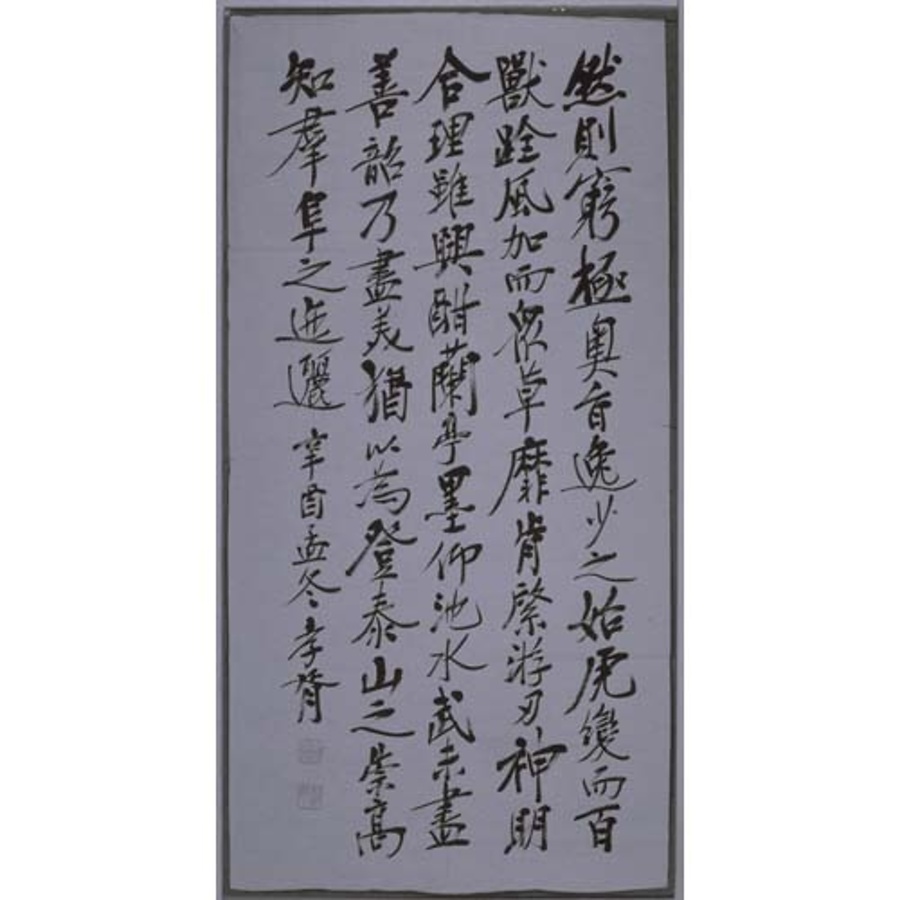 然則窮極奧旨逸少之始虎變而百
獸跧風加而眾草靡肯綮游刃神明
合理雖興酣蘭亭墨仰池水武未盡
善韶乃盡美猶以為登泰山之崇高
知羣阜之迆邐 辛酉孟冬孝胥